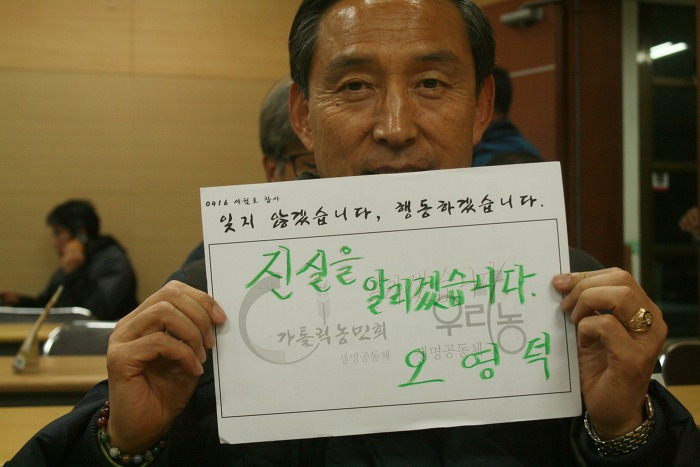 0416 세월호 참사
잊지 않겠습니다, 행동하겠습니다.
진실을 알리겠습니다.
가톨릭농민회 우리농
생명공동체 생명공동체
오영덕